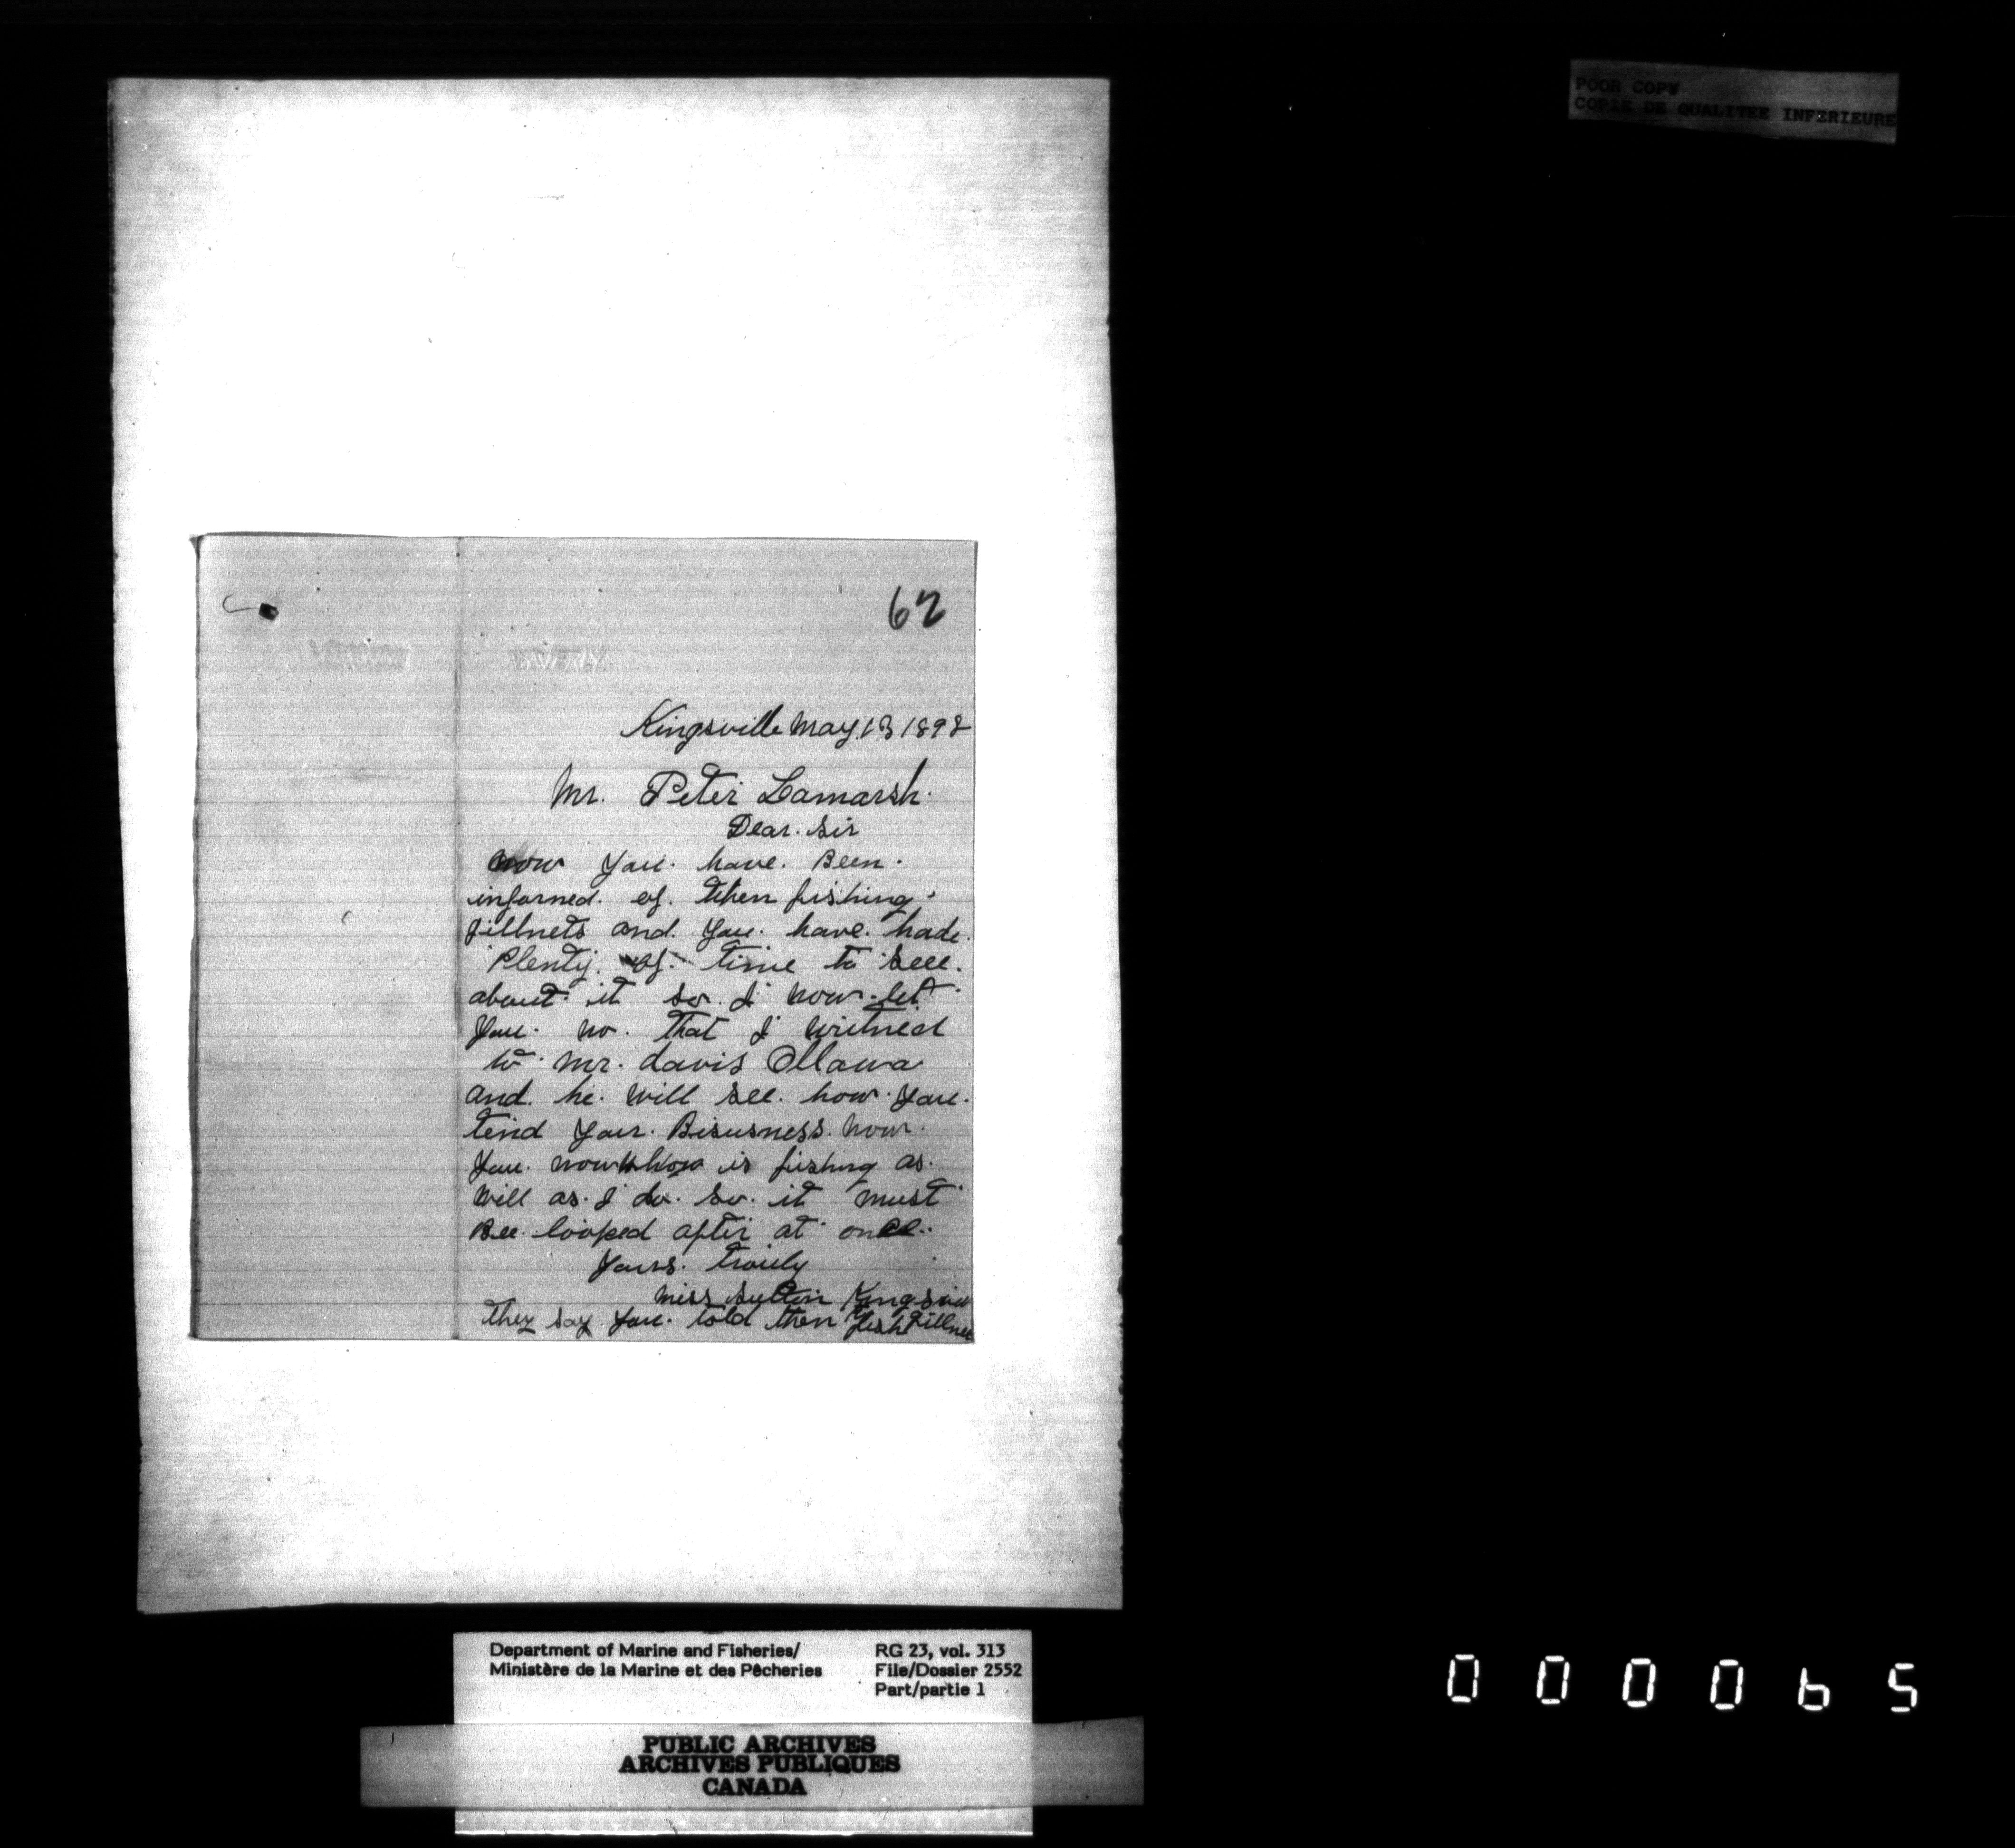 POOR COPY
COPIE DE QUALITEE INFERIEURE
62
WAVERLY
Kingsville May 13 1898
Mr. Peter Lamarsh.
Dear. Sir
now you. have. Been.
informed. of. then fishing.
gillnets and. you. have. hade.
Plenty. of. time to seee.
about. it so. I now. let
you. no. that I
to. mr. davis Ottawa
and. he. will see. how. you.
tend your. Bisusness. now.
you. now who is fishing as.
will as. I do. so. it must
Bee. looked after at once.
yours. truely
miss Sutton
they say you. told then to fish
Department of Marine and Fisheries/
Ministère de la Marine et des Pêcheries
RG 23, vol. 313
File/Dossier 2552
Part/partie 1
PUBLIC ARCHIVES
ARCHIVES PUBLIQUES
CANADA
000065